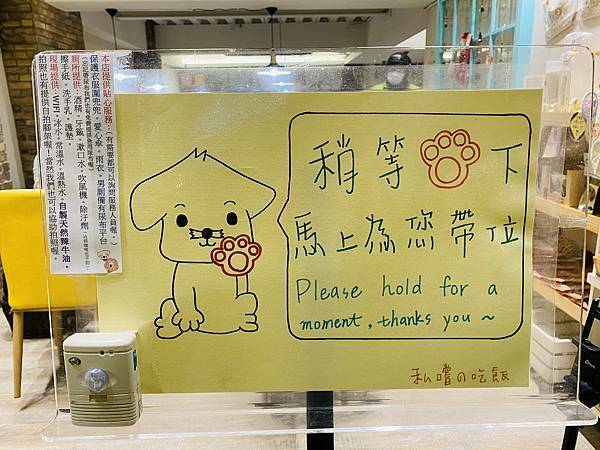 本店提供貼心服務：（有需要都可以詢問服務人員喔。）
保護衣服圍兜兜。愛心傘。雨衣。男廁備有尿布平台
廁所提供：酒精。牙籤。漱口水。吹風機。除汙劑
擦手紙。洗手乳。護墊。
現場提供：WIFI。冰水。常溫水。溫熱水。自製天然辣牛油。
拍照也有提供自拍腳架喔！當然我們也可以協助拍照喔。
稍等 下
馬上為您帶位
Please hold for a
moment, thanks you ~
私嚐の吃飯